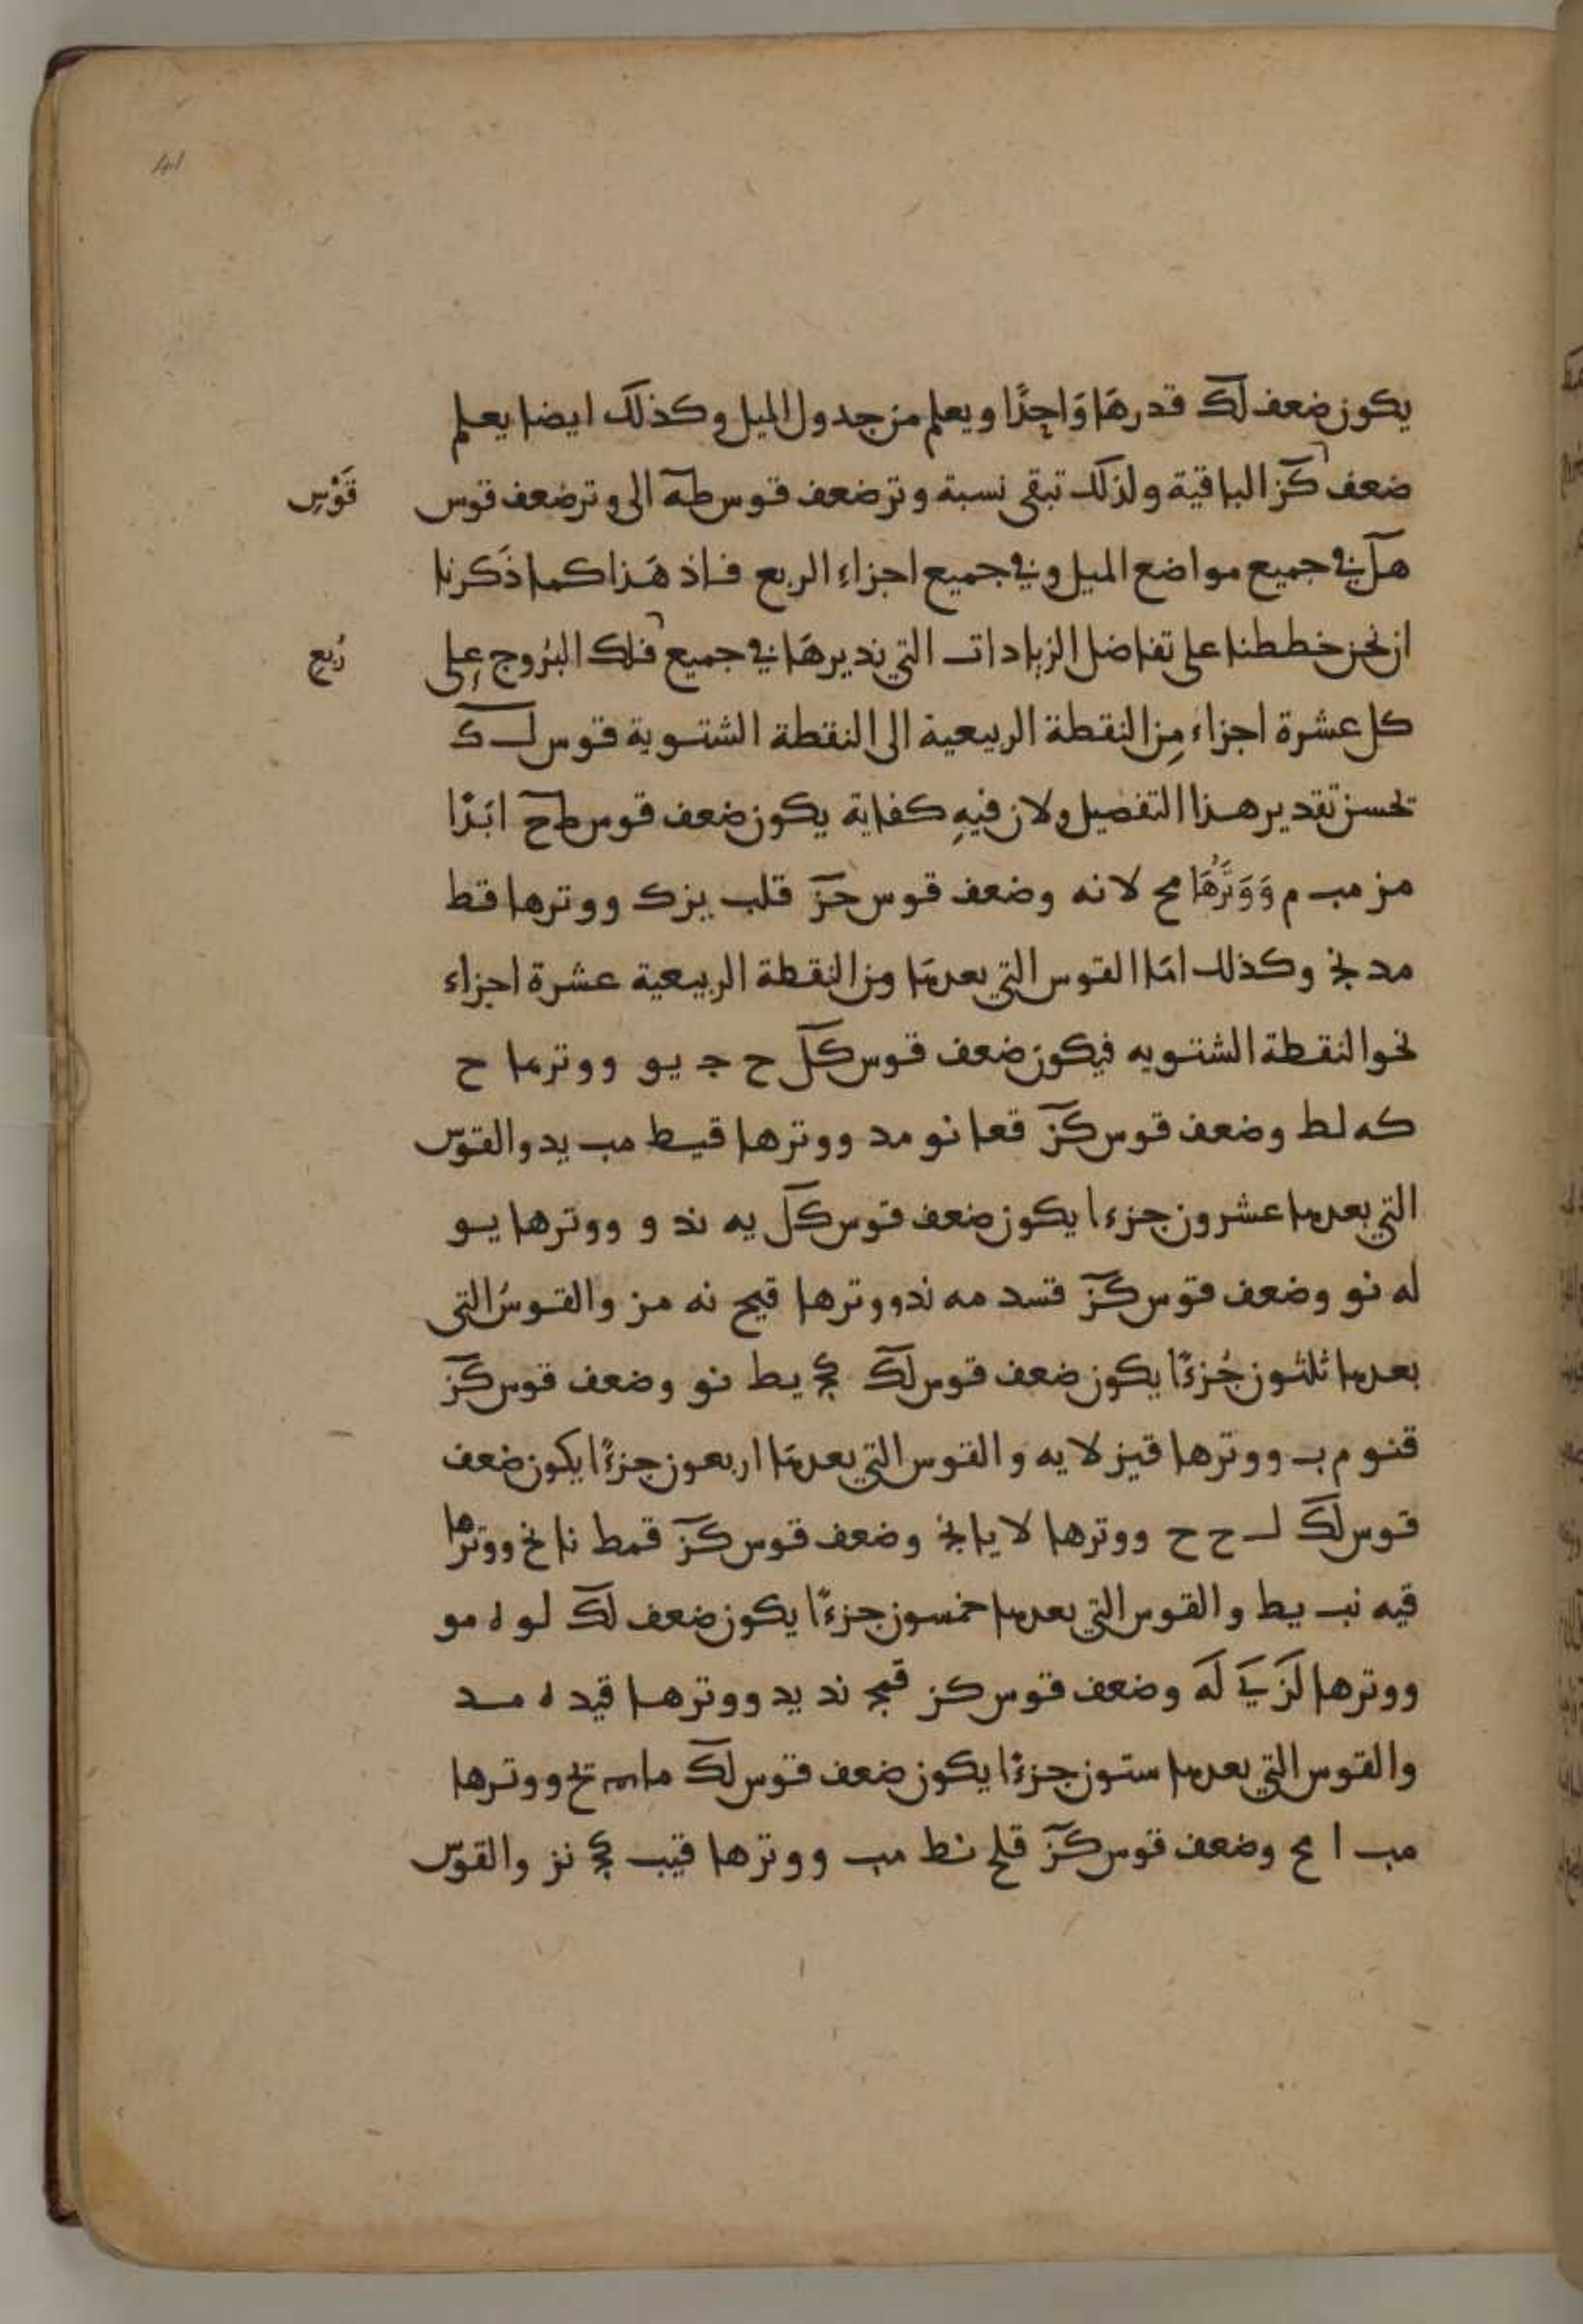 41
يكون ضعف لك قدرها واحدًا ويعلم من جدول الميل وكذلك ايضا يعلم
ضعف كز الباقية ولذلك تبقى نسبة وتر ضعف قوس طه الى وتر ضعف قوس
قَوْس
هل في جميع مواضع الميل وفي جميع اجزاء الربع فاذ هَذا كما ذَكرنا
ان نحن خططنا على تفاضل الزيادات التي نديرهَا في جميع فلك البُروج على
رُبع
كل عشرة اجزاء مِن النقطة الربيعية الى النقطة الشتوية قوس ل ك
تحسن تقدير هذا التفصيل ولان فيهِ كفاية يكون ضعف قوس طح ابَدًا
من مب م وَوَترُهَا مح لا نه وضعف قوس حز قلب يز ك ووترها قط
مد نج وكذلك امَا القوس التي بعدهَا من النقطة الربيعية عشرة اجزاء
نحو النقطة الشتويه فيكون ضعف قوس كل ح ج يو ووترها ح
كه لط وضعف قوس كز قعا نو مد ووترها قيط مب يد والقوس
التي بعدها عشرون جزءا يكون ضعف قوس كل يه ند و ووترها يو
له نو وضعف قوس كز قسد مه ند ووترها قيح نه مز والقوسُ التي
بعدها ثلثون جُزءًا يكون ضعف قوس لك كج يط نو وضعف قوس كز
قنو م ب ووترها قيز لا يه والقوس التي بعدهَا اربعون جزءًا يكون ضعف
قوس لك ل ح ح ووترها لا يا نج وضعف قوس كز قمط نا نج ووترها
قيه نب يط والقوس التي بعدها خمسون جزءًا يكون ضعف لك لو ه مو
ووترها لَز يَ لَه وضعف قوس كز قمج ند يد ووترها قيد ه مد
والقوس التي بعدها ستون جزءًا يكون ضعف قوس لك ما ووترها
مب ا مح وضعف قوس كز قلح نط مب ووترها قيب كج نز والقوس